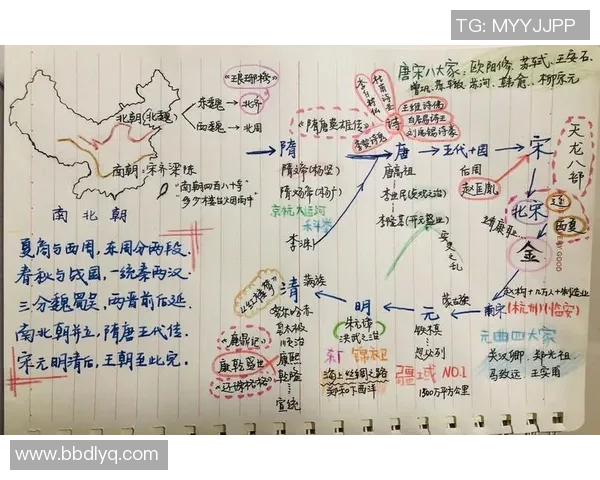 TG: MYYJJPP
唐宋八大家：欧阳修、苏轼、王安石、
曾巩、苏辙、苏洵、韩愈、柳宗元
《琅琊榜》
东魏 → 北齐
北朝(北魏)
西魏 → 北周
南朝：宋齐梁陈
"南朝四百八十寺
多少楼台烟雨中"
南北朝
《隋唐英雄传》
李白诗仙
杜甫诗圣
诗
王维诗佛
白居易诗王
刘禹锡诗豪
隋 → 唐 → 五代十国 → 宋
隋文帝(杨坚)
隋炀帝(杨广)
京杭大运河
科举
李渊
唐高祖
李世民(贞观之治)
李隆基(开元盛世)
安史之乱
后周
赵匡胤
天龙八部
北宋
辽
西夏
靖康耻
金
南宋(杭州临安)
元
蒙古族
铁木真
忽必烈
疆域 NO.1
1500万平方公里
元曲四大家
关汉卿、郑光祖、
马致远、王实甫
明
朱元璋
洪武之治
东厂
锦衣卫
海上丝绸之路
郑和下西洋
清
满族
努尔哈赤
皇太极
顺治
康熙
乾隆
宣统
《鹿鼎记》
康乾盛世
《还珠格格》
夏商与西周，东周分两段，
春秋与战国，一统秦两汉，
三分魏蜀吴，两晋前后延，
南北朝并立，隋唐五代传，
宋元明清后，王朝至此完。
www.bbdlyq.com